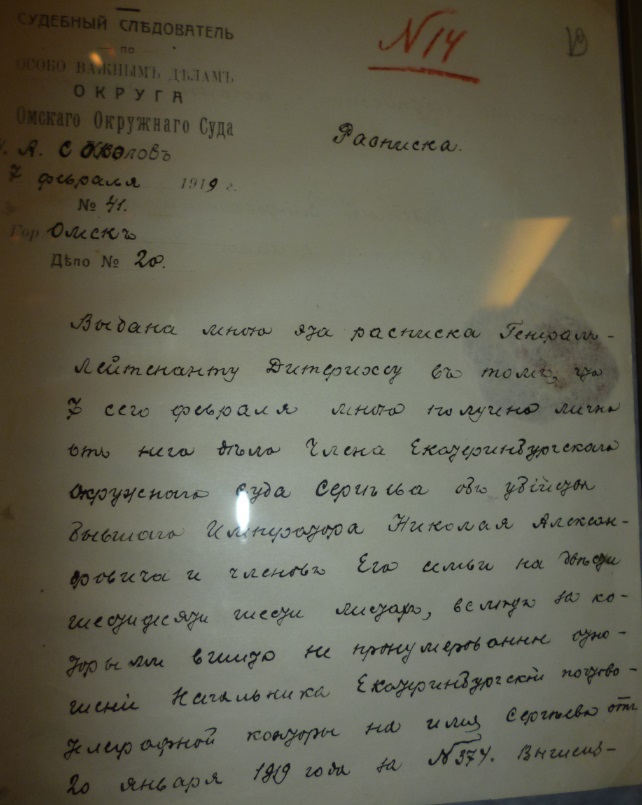 СУДЕБНЫЙ СЛѢДОВАТЕЛЬ
ПО
ОСОБО ВАЖНЫМЪ ДѢЛАМЪ
ОКРУГА
Омскаго Окружнаго Суда
Н. А. Соколовъ
7 февраля 1919 г.
№ 41.
Гор. Омскъ
Дѣло № 20.
N 14
19
Расписка.
Выдана мною эта расписка Генералъ-
Лейтенанту Дитерихсу въ томъ, что
7 сего февраля мною получено лично
отъ него дѣло Члена Екатеринбургскаго
Окружнаго Суда Сергѣева объ убійствѣ
бывшаго Императора Николая Алексан-
дровича и членовъ Его семьи на двѣсти
шестидесяти шести листахъ, вслѣдъ за ко-
торыми вшито не пронумерованное отно-
шеніе Начальника Екатеринбургской почтово-
телеграфной конторы на имя Сергѣева отъ
20 января 1919 года за № 374.